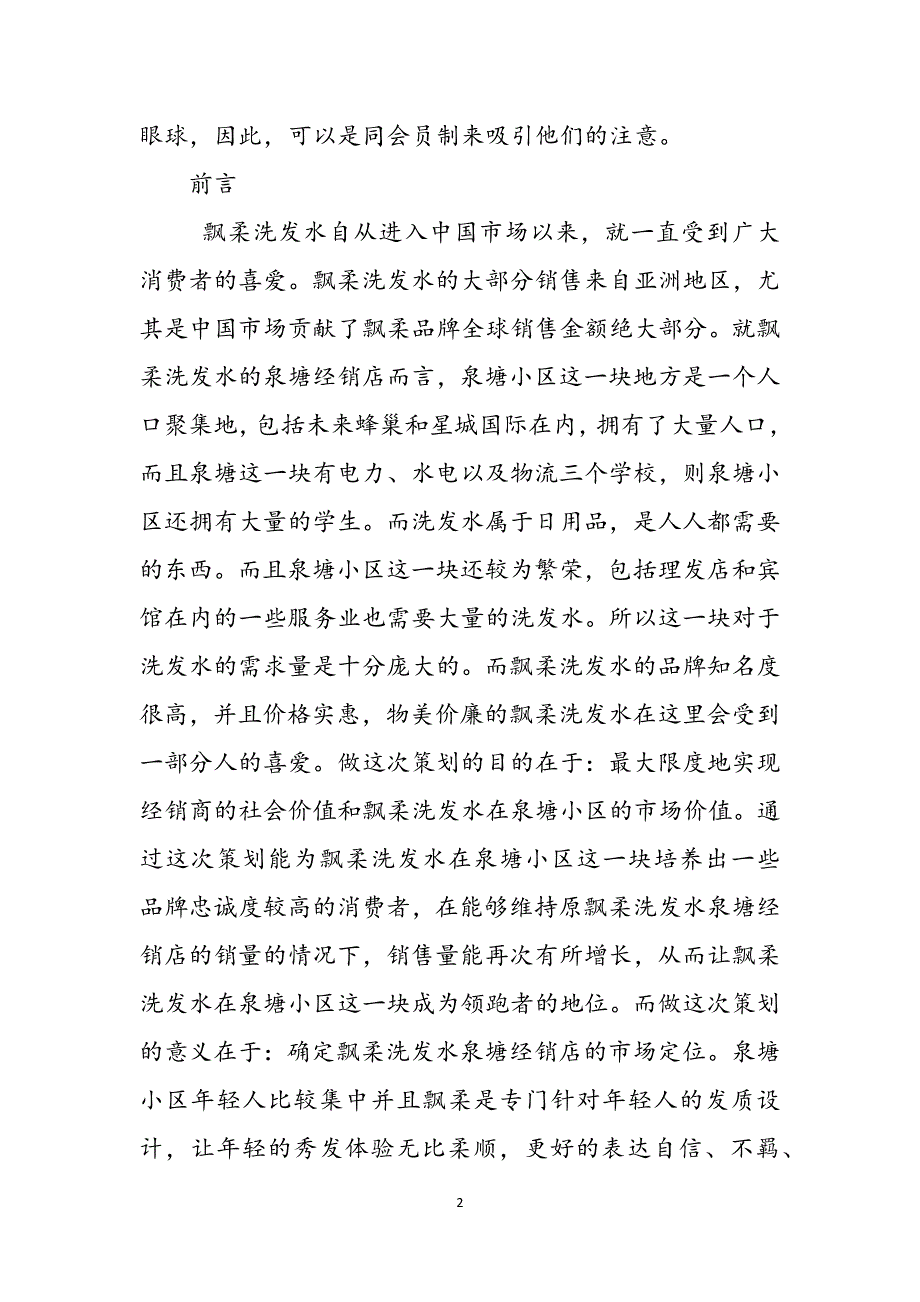 眼球，因此，可以是同会员制来吸引他们的注意。
前言
飘柔洗发水自从进入中国市场以来，就一直受到广大
消费者的喜爱。飘柔洗发水的大部分销售来自亚洲地区，尤
其是中国市场贡献了飘柔品牌全球销售金额绝大部分。就飘
柔洗发水的泉塘经销店而言，泉塘小区这一块地方是一个人
口聚集地，包括未来蜂巢和星城国际在内，拥有了大量人口，
而且泉塘这一块有电力、水电以及物流三个学校，则泉塘小
区还拥有大量的学生。而洗发水属于日用品，是人人都需要
的东西。而且泉塘小区这一块还较为繁荣，包括理发店和宾
馆在内的一些服务业也需要大量的洗发水。所以这一块对于
洗发水的需求量是十分庞大的。而飘柔洗发水的品牌知名度
很高，并且价格实惠，物美价廉的飘柔洗发水在这里会受到
一部分人的喜爱。做这次策划的目的在于：最大限度地实现
经销商的社会价值和飘柔洗发水在泉塘小区的市场价值。通
过这次策划能为飘柔洗发水在泉塘小区这一块培养出一些
品牌忠诚度较高的消费者，在能够维持原飘柔洗发水泉塘经
销店的销量的情况下，销售量能再次有所增长，从而让飘柔
洗发水在泉塘小区这一块成为领跑者的地位。而做这次策划
的意义在于：确定飘柔洗发水泉塘经销店的市场定位。泉塘
小区年轻人比较集中并且飘柔是专门针对年轻人的发质设
计，让年轻的秀发体验无比柔顺，更好的表达自信、不羁、
2